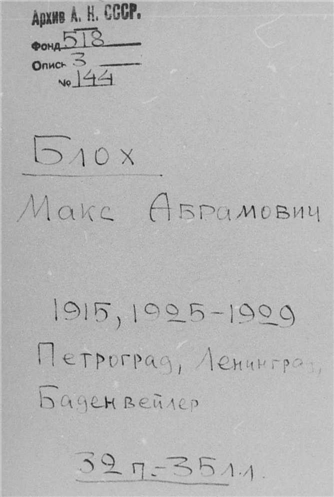 Архив А. Н. СССР.
Фонд 518
Опись 3
№ 144
Блох
Макс Абрамович
1915, 1925-1929
Петроград, Ленинград,
Баденвейлер
32 п.-35 л.л.